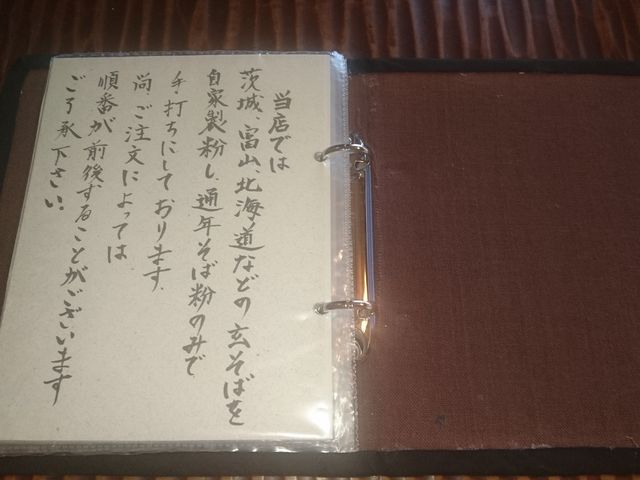 当店では
茨城、富山、北海道などの玄そばを
自家製粉し、通年そば粉のみで
手打ちにしております。
尚、ご注文によっては
順番が前後することがございます
ご了承下さい。